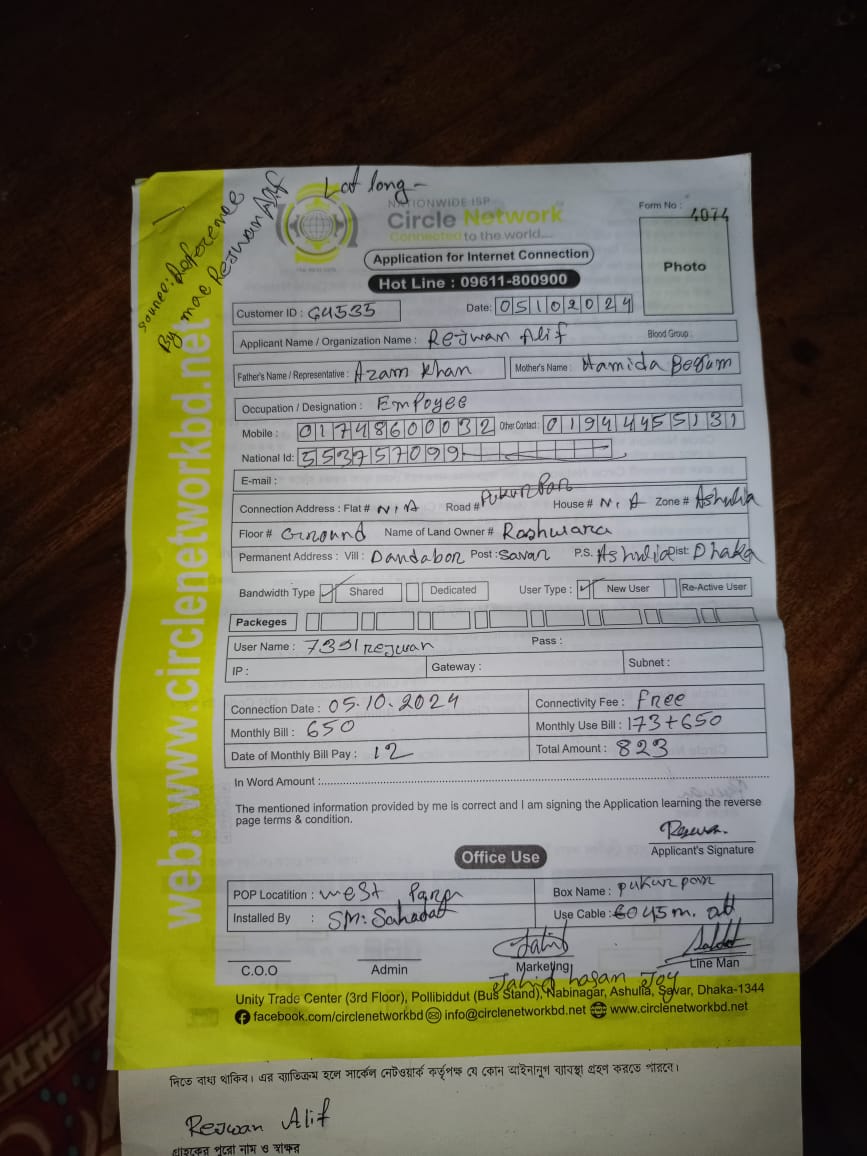 Lat long -
Source: Reference
By mac Rejwan Alif
NATIONWIDE ISP
Circle Network
Connected to the world....
Form No : 4074
Application for Internet Connection
Photo
Hot Line : 09611-800900
Customer ID : G4535
Date: 05102024
Applicant Name / Organization Name : Rejwan Alif
Blood Group :
Father's Name / Representative : Azam Khan
Mother's Name : Hamida Begum
Occupation / Designation : Empoyee
Mobile : 01748600032 Other Contact : 01944455131
National Id: 553757099
E-mail :
Connection Address : Flat # N, A Road # Pukur Par House # N, A Zone # Ashulia
Floor # Ground Name of Land Owner # Rashwara
Permanent Address : Vill : Dandabor Post : Savar P.S. Ashulia Dist: Dhaka
Bandwidth Type Shared Dedicated User Type : New User Re-Active User
Packeges
User Name : Rejwan Pass :
IP : Gateway : Subnet :
Connection Date : 05.10.2024 Connectivity Fee : Free
Monthly Bill : 650 Monthly Use Bill : 173+650
Date of Monthly Bill Pay : 12 Total Amount : 823
In Word Amount :
The mentioned information provided by me is correct and I am signing the Application learning the reverse
page terms & condition.
Applicant's Signature
Office Use
POP Locatition : West Box Name : pukur par
Installed By : SM: Sahadat Use Cable : 45 m.
Jahid
C.O.O Admin Marketing Line Man
Jahid hasan Joy
Unity Trade Center (3rd Floor), Pollibiddut (Bus Stand), Nabinagar, Ashulia, Savar, Dhaka-1344
facebook.com/circlenetworkbd info@circlenetworkbd.net www.circlenetworkbd.net
web: www.circlenetworkbd.net
দিতে বাধ্য থাকিব। এর ব্যতিক্রম হলে সার্কেল নেটওয়ার্ক কর্তৃপক্ষ যে কোন আইনানুগ ব্যাবস্থা গ্রহণ করতে পারবে।
Rejwan Alif
গ্রাহকের পুরো নাম ও স্বাক্ষর